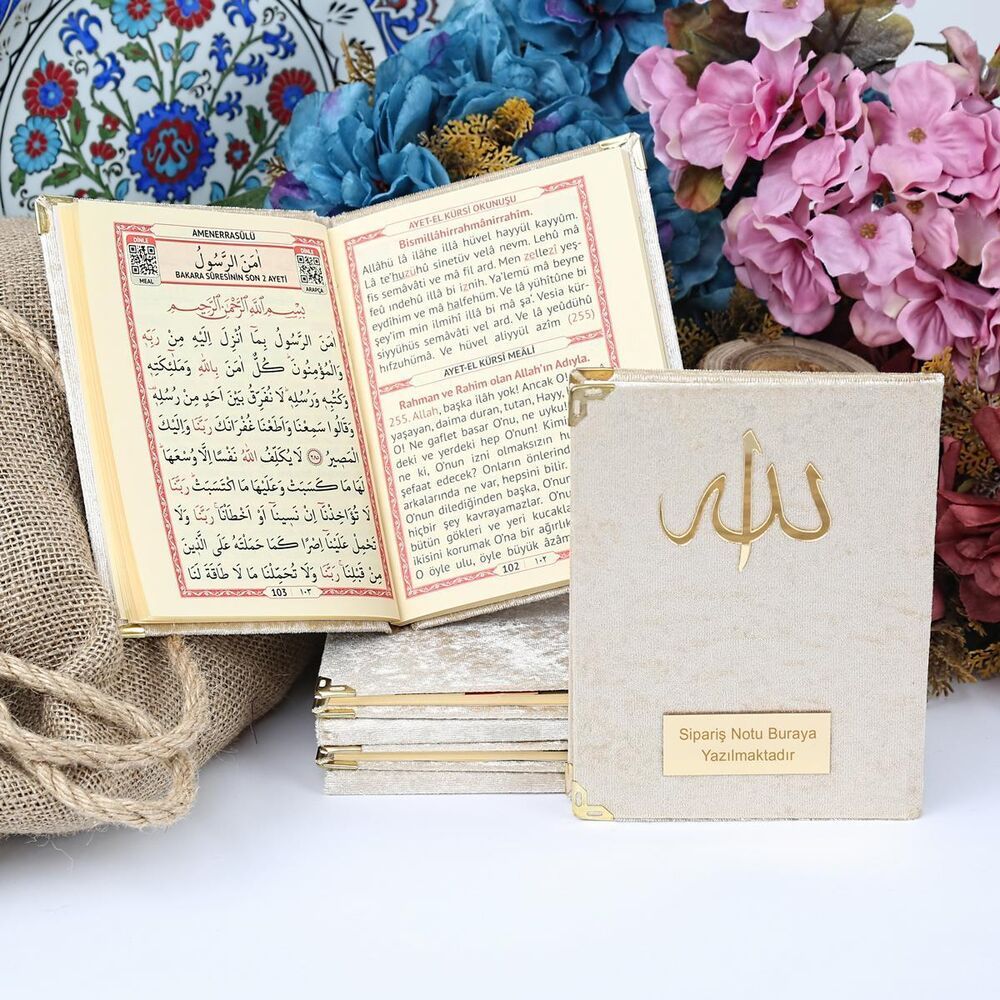 DİNLE
MEAL
AMENERRASÛLÜ
اٰمَنَ الرَّسُولُ
BAKARA SÛRESİNİN SON 2 AYETİ
DİNLE
ARAPÇA
بِسْمِ اللّٰهِ الرَّحْمٰنِ الرَّحِيمِ
اٰمَنَ الرَّسُولُ بِمَٓا اُنْزِلَ اِلَيْهِ مِنْ رَبِّه۪
وَالْمُؤْمِنُونَۜ كُلٌّ اٰمَنَ بِاللّٰهِ وَمَلٰٓئِكَتِه۪
وَكُتُبِه۪ وَرُسُلِه۪ۜ لَا نُفَرِّقُ بَيْنَ اَحَدٍ مِنْ رُسُلِه۪
وَقَالُوا سَمِعْنَا وَاَطَعْنَا غُفْرَانَكَ رَبَّنَا وَاِلَيْكَ
الْمَص۪يرُ ﴿٢٨٥﴾ لَا يُكَلِّفُ اللّٰهُ نَفْسًا اِلَّا وُسْعَهَاۜ
لَهَا مَا كَسَبَتْ وَعَلَيْهَا مَا اكْتَسَبَتْۜ رَبَّنَا
لَا تُؤَاخِذْنَٓا اِنْ نَس۪ينَٓا اَوْ اَخْطَأْنَاۚ رَبَّنَا وَلَا
تَحْمِلْ عَلَيْنَٓا اِصْرًا كَمَا حَمَلْتَهُ عَلَى الَّذ۪ينَ
مِنْ قَبْلِنَاۚ رَبَّنَا وَلَا تُحَمِّلْنَا مَا لَا طَاقَةَ لَنَا
103 ١٠٣
AYET-EL KÜRSİ OKUNUŞU
Bismillâhirrahmânirrahim.
Allâhü lâ ilâhe illâ hüvel hayyül kayyûm.
Lâ te'huzühû sinetüv velâ nevm. Lehû mâ
fis semâvâti ve mâ fil ard. Men zellezi yeş-
feû ındehû illâ bi iznih. Ya'lemü mâ beyne
eydîhim ve mâ halfehüm. Ve lâ yühîtûne bi
şey'im min ilmihî illâ bi mâ şa'. Vesia kür-
siyyühüs semâvâti vel ard. Ve lâ yeûdühû
hıfzuhümâ. Ve hüvel aliyyül azîm (255)
AYET-EL KÜRSİ MEALİ
Rahman ve Rahim olan Allah'ın Adıyla.
255. Allah, başka ilâh yok! Ancak O'
yaşayan, daima duran, tutan, Hayy,
O! Ne gaflet basar O'nu, ne uyku
deki ve yerdeki hep O'nun! Kimin
ne ki, O'nun izni olmaksızın hu
şefaat edecek? Onların önlerind
arkalarında ne var, hepsini bilir.
O'nun dilediğinden başka, O'nun
hiçbir şey kavrayamazlar. O'nun
bütün gökleri ve yeri kucakla
ikisini korumak O'na bir ağırlık
O öyle ulu, öyle büyük âzâm
102 ١٠٢
الله
Sipariş Notu Buraya
Yazılmaktadır